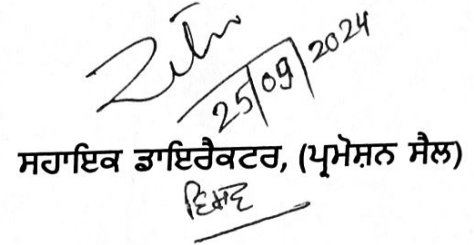 25/09/2024
ਸਹਾਇਕ ਡਾਇਰੈਕਟਰ, (ਪ੍ਰਮੋਸ਼ਨ ਸੈੱਲ)